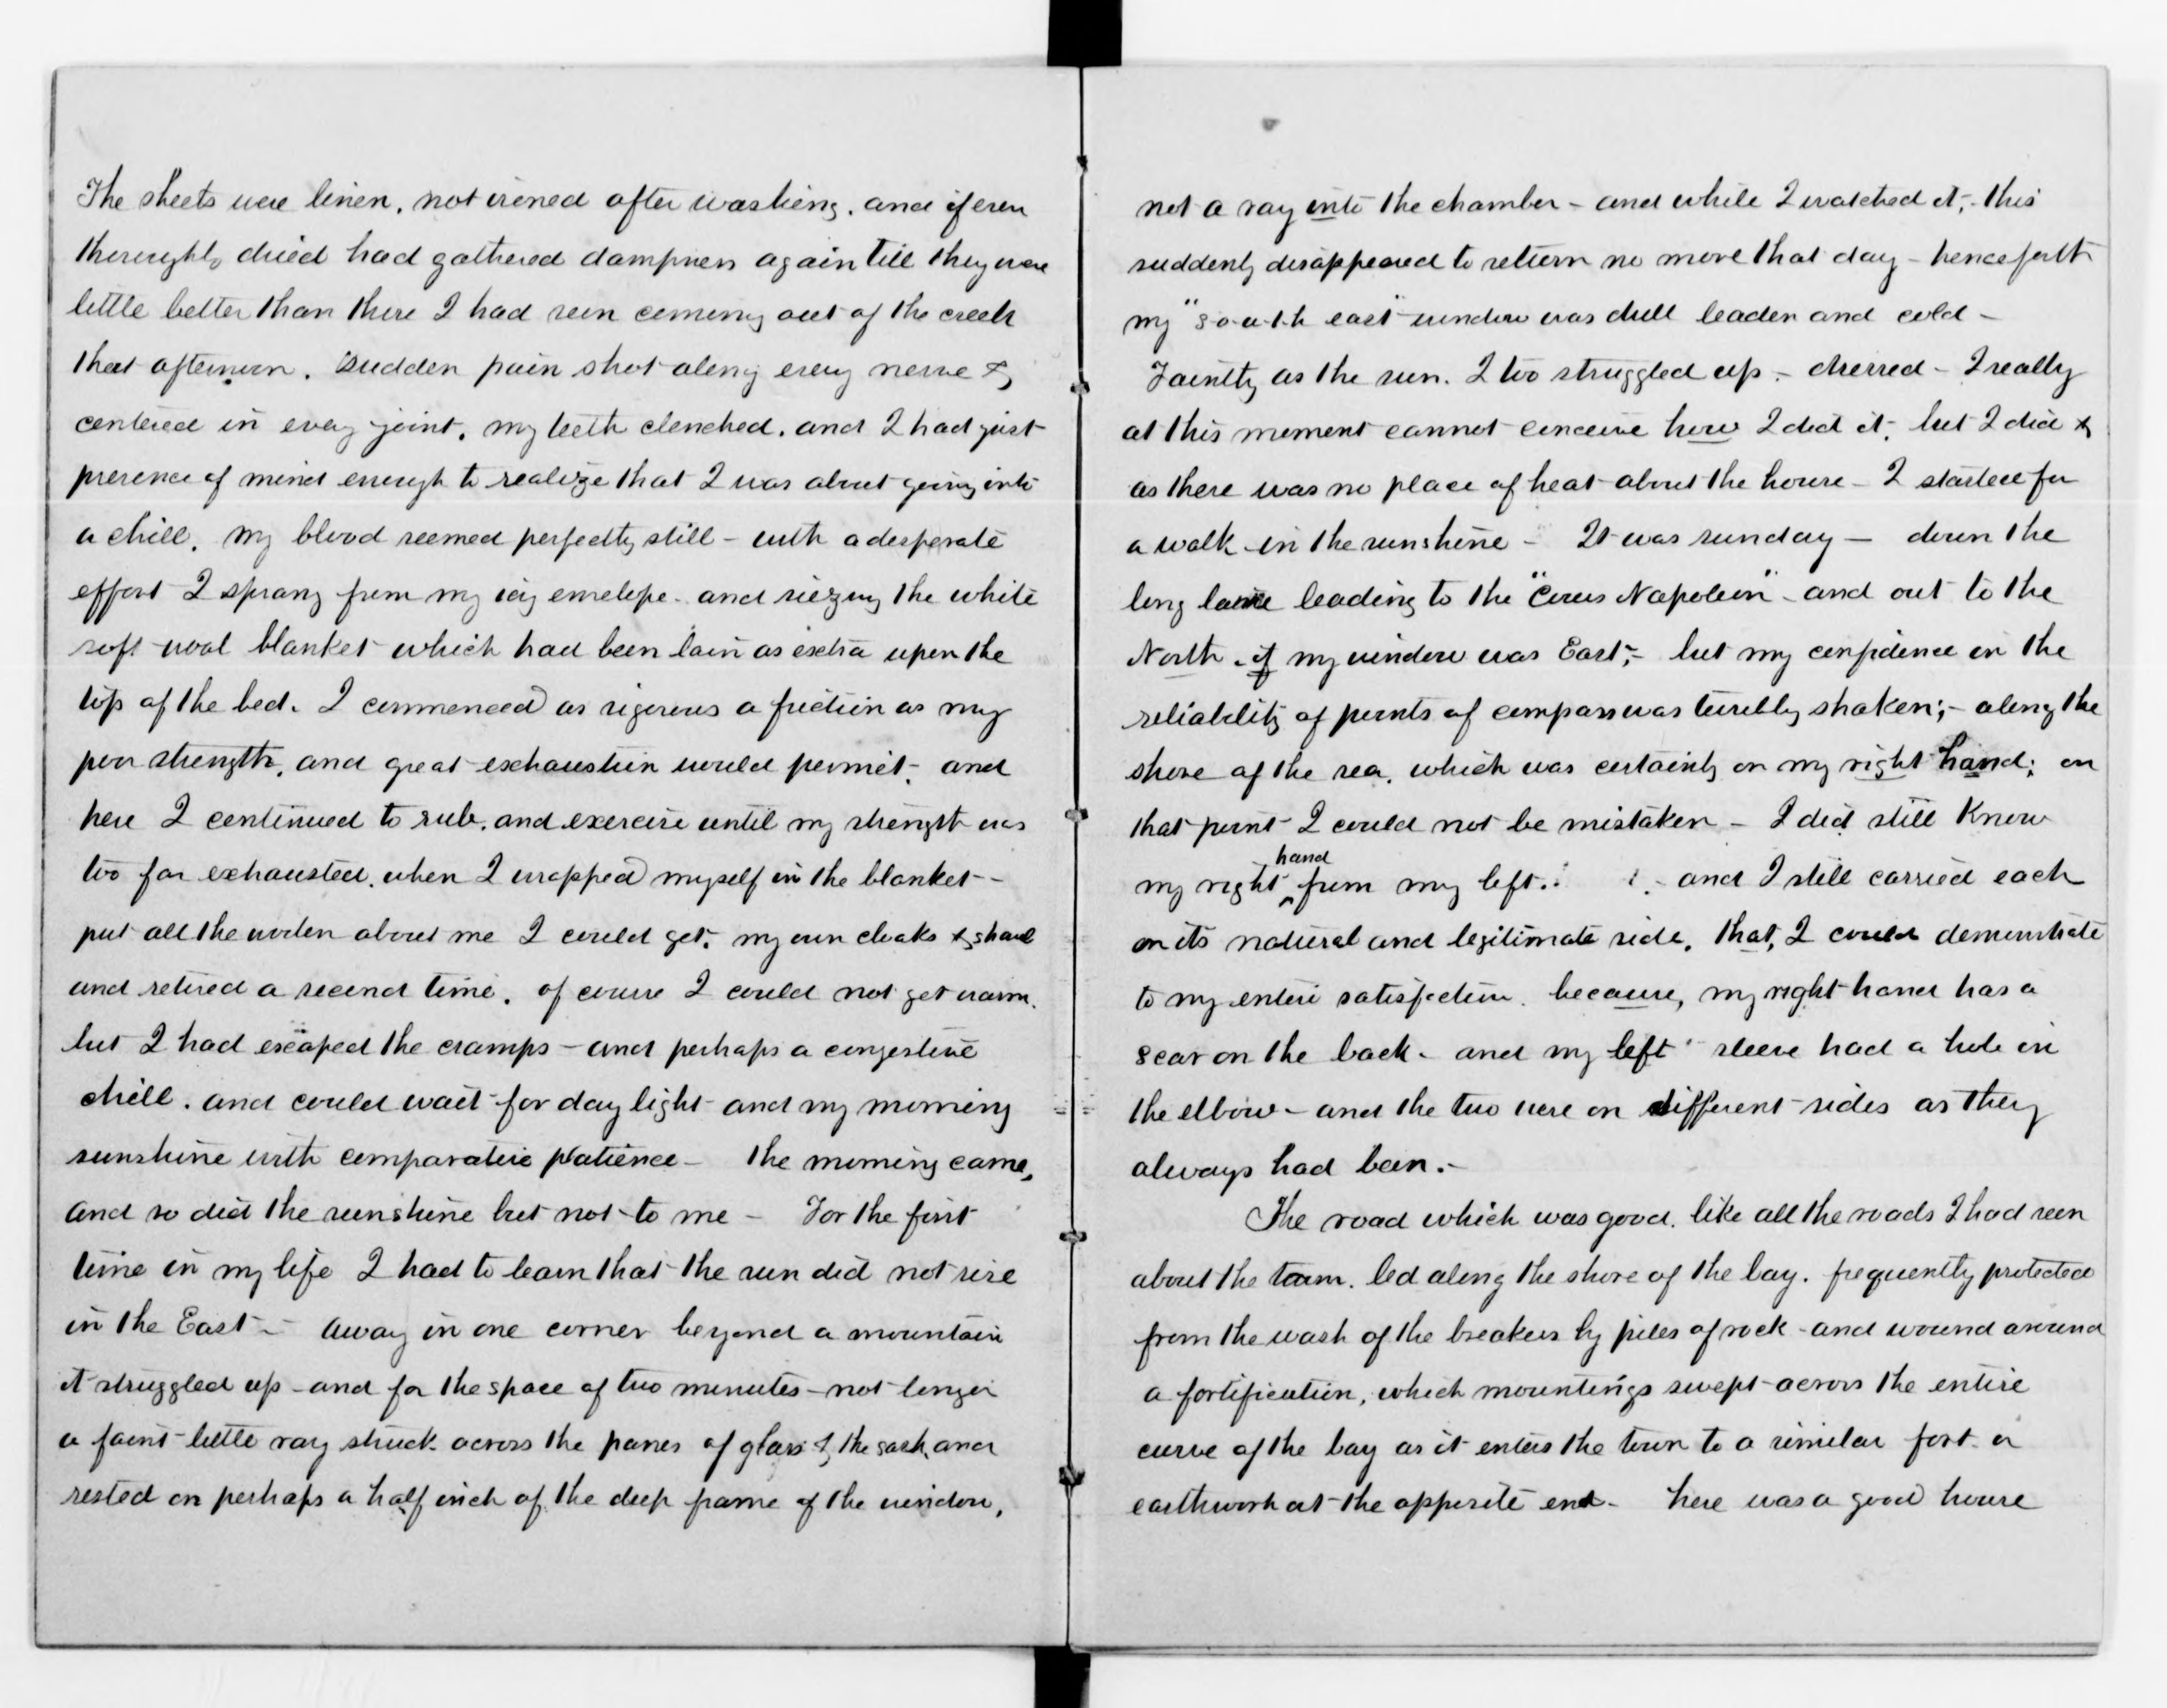 The sheets were linen, not ironed after washing, and if ever
thoroughly dried had gathered dampness again till they were
little better than there I had seen coming out of the creek
that afternoon. Sudden pain shot along every nerve &
centered in every joint, my teeth clenched, and I had just
presence of mind enough to realize that I was about going into
a chill, my blood seemed perfectly still – with a desperate
effort I sprang from my icy envelope – and siezing the white
soft wool blanket which had been lain as extra upon the
top of the bed, I commenced as vigorous a friction as my
poor strength, and great exhaustion would permit, and
here I continued to rub, and exercise until my strength was
too far exhausted, when I wrapped myself in the blanket –
put all the woolen about me I could get, my own cloaks & shawl
and retired a second time, of course I could not get warm,
but I had escaped the cramps – and perhaps a congestive
chill, and could wait for day light and my morning
sunshine with comparative patience – The morning came,
and so did the sunshine but not to me – For the first
time in my life I had to learn that the sun did not rise
in the East – away in one corner beyond a mountain
it struggled up – and for the space of two minutes – not longer
a faint little ray struck across the panes of glass & the sash, and
rested on perhaps a half inch of the deep frame of the window,
not a ray into the chamber – and while I watched it, – this
suddenly disappeared to return no more that day – henceforth
my "south east" window was dull leaden and cold –
Faintly as the sun, I too struggled up – dressed – I really
at this moment cannot conceive how I did it, but I did &
as there was no place of heat about the house – I started for
a walk in the sunshine – It was sunday – down the
long lane leading to the "Cours Napoleon" – and out to the
North – if my window was East; – but my confidence in the
reliability of points of compass was terribly shaken; – along the
shore of the sea, which was certainly on my right hand; on
that point I could not be mistaken – I did still know
my right hand from my left. – and I still carried each
on its natural and legitimate side, that, I could demonstrate
to my entire satisfaction, because, my right hand has a
scar on the back – and my left sleeve had a hole in
the elbow – and the two were on different sides as they
always had been. –
The road which was good, like all the roads I had seen
about the town, led along the shore of the bay, frequently protected
from the wash of the breakers by piles of rock – and wound around
a fortification, which mountings swept across the entire
curve of the bay as it enters the town to a similar fort or
earthwork at the opposite end – here was a good house